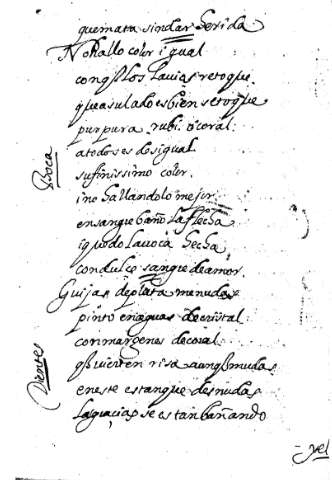 quemata sindar herida
No hallo color igual
conq̃ los lavios retoque
que a su lado es bien se toque
purpura rubi o coral
a todos es desigual
su finissimo color
Boca
i no hallandolo mejor
en sangre baño la flecha
i quedo la voca hecha
con dulce sangre de amor
Guijas de plata menudas
pinto en aguas de cristal
con margenes de coral
q̃ vierten risa aunq̃ mudas
Dientes
en este estanque desnudas
las gracias se estan bañando
yel